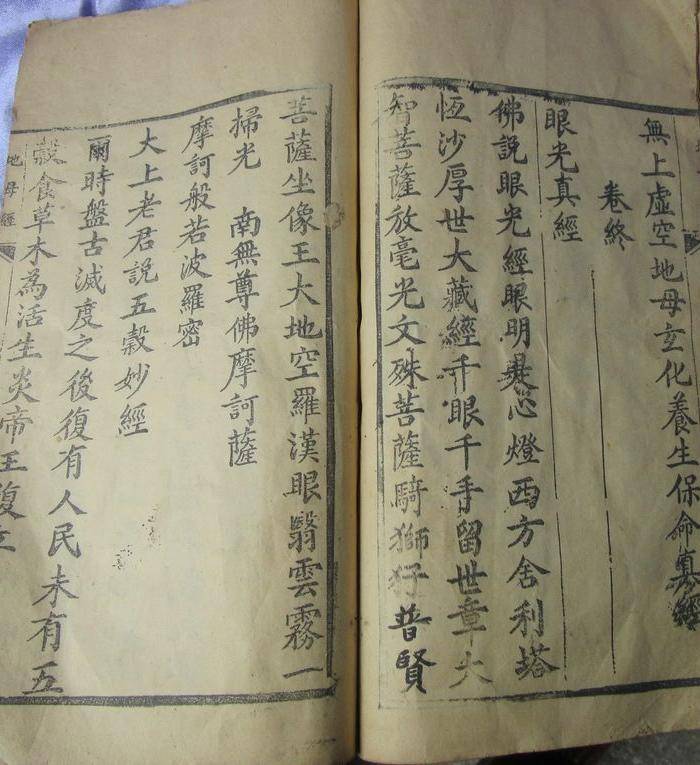 無上虛空地母玄化養生保命真經
卷終
眼光真經
佛說眼光經眼明是心燈西方舍利塔
恆沙厚世大藏經千眼千手留世章大
智菩薩放毫光文殊菩薩騎獅犼普賢
菩薩坐像王大地空羅漢眼翳雲霧一
掃光　南無尊佛摩訶薩
摩訶般若波羅密
大上老君說五穀妙經
爾時盤古滅度之後復有人民未有五
穀食草木為活生炎帝王復
地母經